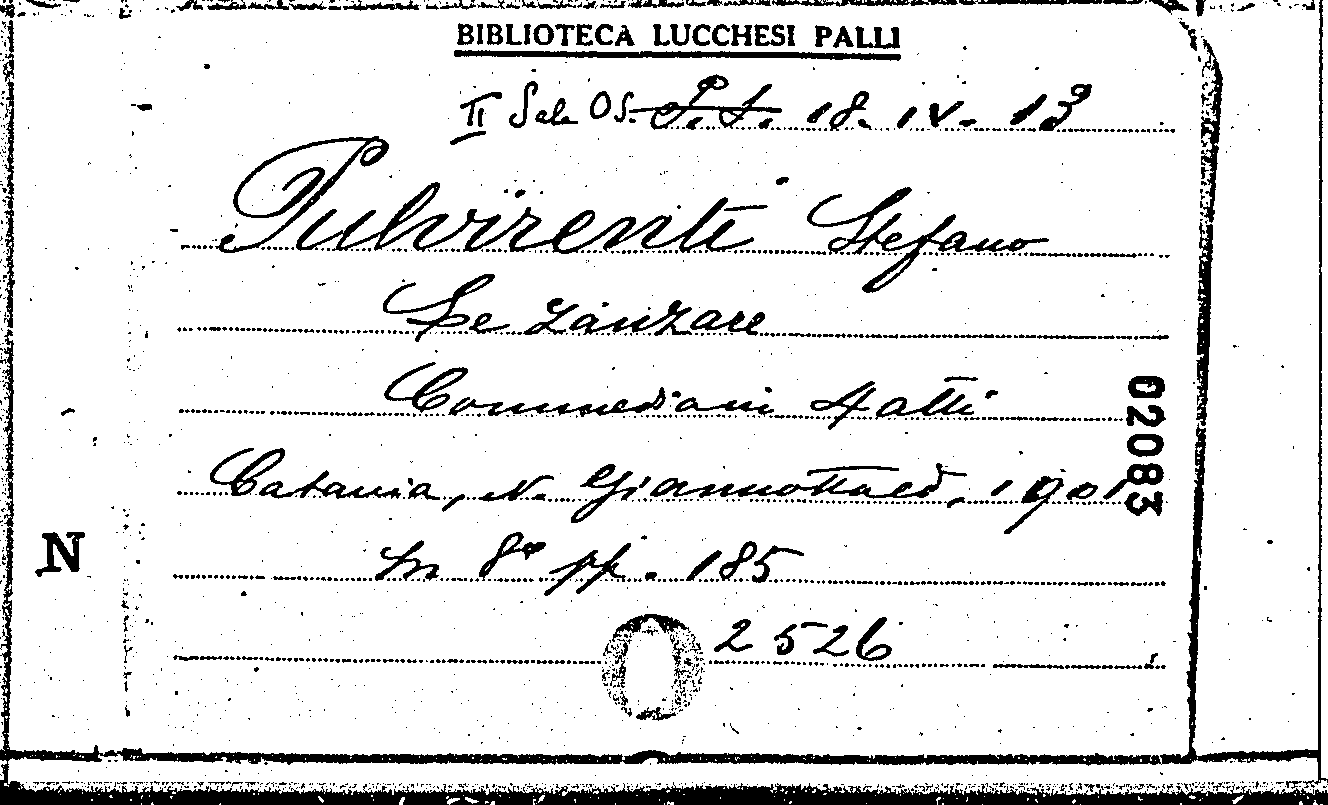 BIBLIOTECA LUCCHESI PALLI
II Sala OS. P.S. 18. IV. 13
Pulvirenti Stefano
Le zanzare
Commedia in 4 atti
Catania, N. Giannotta ed. 1901
02083
In 8° pp. 185
N
2526